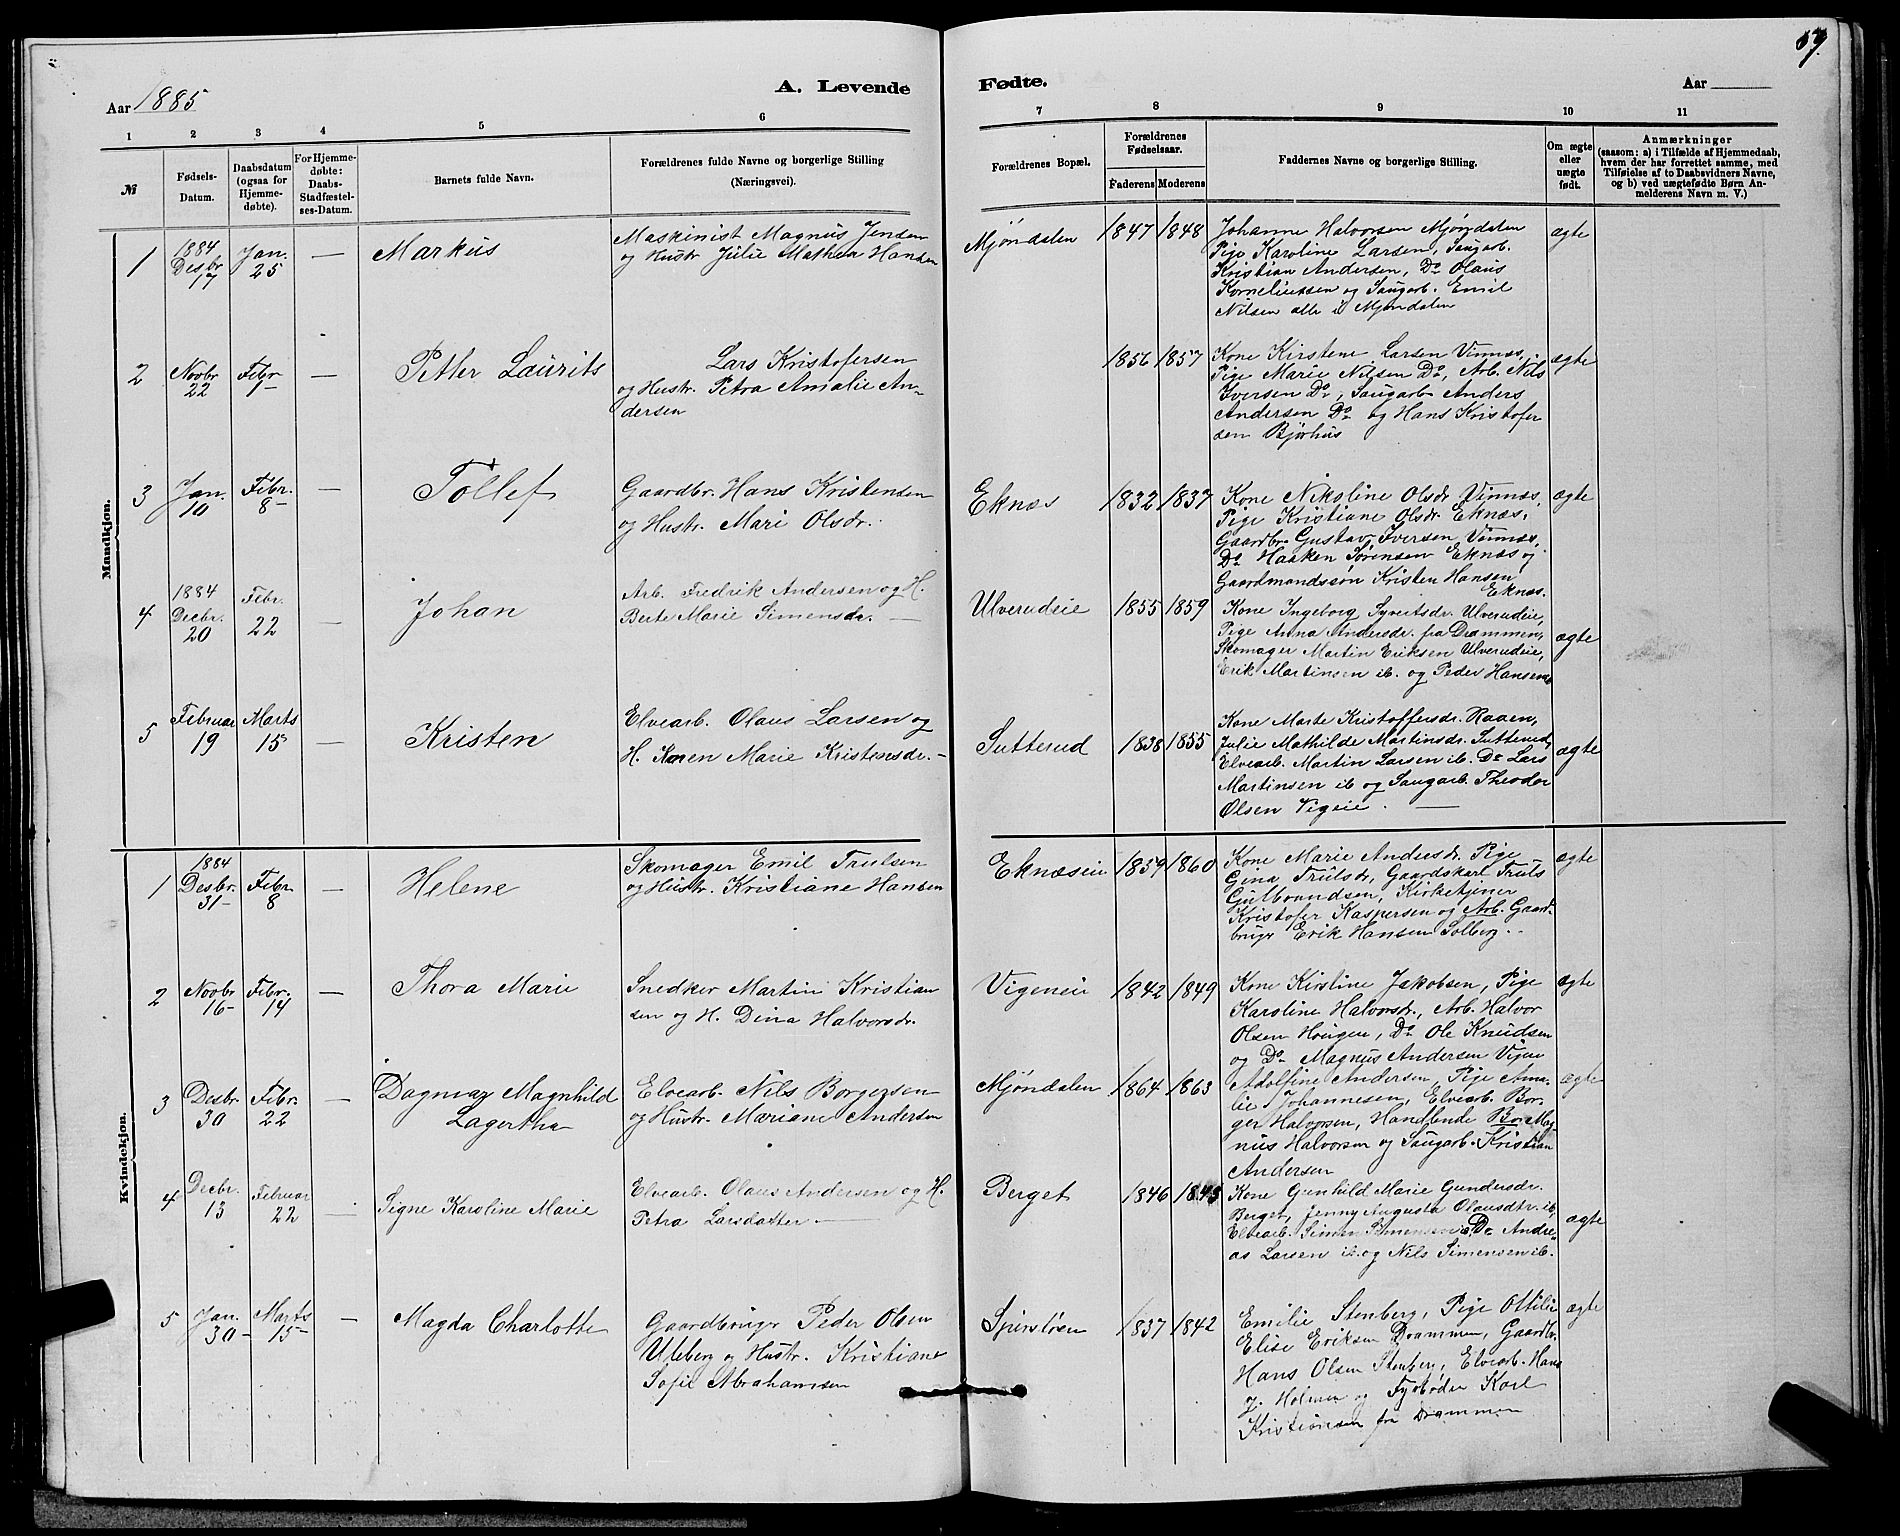 Aar 1885
A. Levende
1
2
3
4
5
6
№
Fødsels-
Datum.
Daabsdatum
(ogsaa for
Hjemme-
døbte).
For Hjemme-
døbte:
Daabs-
Stadfæstel-
ses-Datum.
Barnets fulde Navn.
Forældrenes fulde Navne og borgerlige Stilling
(Næringsvei).
Mandkjøn.
1
1884
Desbr
17
Jan.
25
—
Markus
Maskinist Magnus Jensen
og Hustr. Julie Mathea Hansen
2
Novbr
22
Febr
1
—
Petter Laurits
Lars Kristofersen
og Hustr. Petra Amalie An-
dersen
3
Jan.
10
Febr.
8
—
Tollef
Gaardbr. Hans Kristensen
og Hustr. Mari Olsdr.
4
1884
Decbr.
20
Febr.
22
—
Johan
Arb. Fredrik Andersen og H.
Berte Marie Simensdr. —
5
Februar
19
Marts
15
—
Kristen
Elvearb. Olaus Larsen og
H. Karen Marie Kristensdr. —
Kvindekjøn.
1
1884
Desbr.
31
Febr
8
—
Helene
Skomager Emil Trulsen
og Hustr. Kristiane Hansen
2
Novbr
16
Febr.
14
—
Thora Marie
Snedker Martin Kristian
sen og H. Dina Halvorsdr.
3
Desbr
30
Febr.
22
—
Dagmar Magnhild
Lagertha
Elvearb. Nils Borgersen
og Hustr. Mariane Andersen
4
Decbr.
13
Februar
22
—
Signe Karoline Marie
Elvearb. Olaus Andersen og H.
Petra Larsdatter —
5
Jan.
30
Marts
15
—
Magda Charlotte
Gaardbrugr Peder Olsen
Uleberg og Hustr. Kristiane
Sofie Abrahamsen
Fødte.
Aar
59
7
8
9
10
11
Forældrenes Bopæl.
Forældrenes
Fødselsaar.
Faderens
Moderens
Faddernes Navne og borgerlige Stilling.
Om ægte
eller
uægte
født.
Anmærkninger
(saasom: a) i Tilfælde af Hjemmedaab,
hvem der har forrettet samme, med
Tilføielse af to Daabsvidners Navne,
og b) ved uægtefødte Børn An-
melderens Navn m. V.)
Mjøndalen
1847
1848
Johanne Halvorsen Mjøndalen
Pige Karoline Larsen, Saugarb.
Kristian Andersen, Do Olaus
Korneliussen og Saugarb. Emil
Nilsen alle i Mjøndalen
ægte
1856
1857
Kone Kirstene Larsen Vinnæs,
Pige Marie Nilsen Do, Arb. Nils
Iversen Do, Saugarb Anders
Andersen Do og Hans Kristofer
sen Bjørhus
ægte
Eknæs
1832
1837
Kone Nikoline Olsdr. Vinnæs,
Pige Kristiane Olsdr. Eknæs,
Gaardbr. Gustav Iversen Vinnæs,
Do Haaken Sørensen Eknæs og
Gaardmandssøn Kristen Hansen
Eknæs.
ægte
Ulverudeie
1855
1859
Kone Ingeborg Syvertsdr. Ulverudeie,
Pige Anna Andersdr. fra Drammen,
Skomager Martin Eriksen Ulverudeie,
Erik Martinsen ib. og Peder Hansen
ægte
Sutterud
1838
1855
Kone Marte Kristoffersdr. Raaen,
Julie Mathilde Martinsdr. Sutterud,
Elvearb. Martin Larsen ib. Do Lars
Martinsen ib og Saugarb. Theodor
Olsen Vigeie. —
ægte
Eknæseie
1859
1860
Kone Marie Andersdr. Pige
Gina Trulsdr, Gaardskarl Truls
Gulbrandsen, Kirketjener
Kristofer Kaspersen og Arb. Gaard-
brugr Erik Hansen Solberg.
ægte
Vigeneie
1842
1849
Kone Kirstine Jakobsen, Pige
Karoline Halvorsdr., Arb. Halvor
Olsen Hougen, Do Ole Knudsen
og Do Magnus Andersen Vigen
ægte
Mjøndalen
1864
1863
Adolfine Andersen, Pige Ama-
lie Johannesen, Elvearb. Bor-
ger Halvorsen, Handlende Bor. Mag-
nus Halvorsen og Saugarb. Kristian
Andersen
ægte
Berget
1846
Kone Gunhild Marie Gundersdr.
Berget, Jenny Augusta Olausdtr. ib.
Elvearb. Simen Simensen ib Do Andre-
as Larsen ib. og Nils Simensen ib.
ægte
1837
1842
Emilie Stenberg, Pige Ottilie
Elise Eriksen Drammen, Gaardbr.
Hans Olsen Stenberg, Elvearb. Hans
J. Holmen og Fyrbøder Karl
Kristiansen fra Drammen
ægte